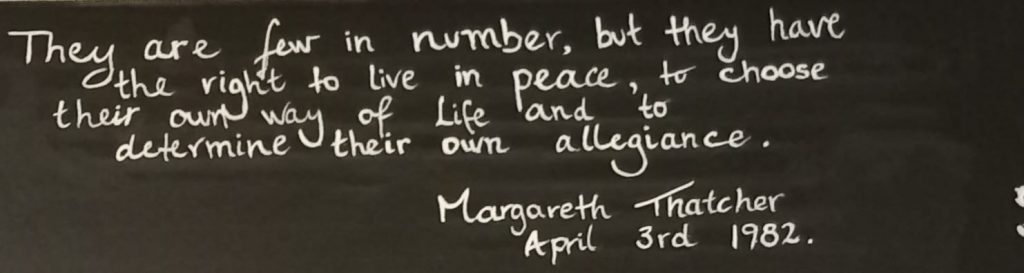 They are few in number, but they have
the right to live in peace, to choose
their own way of Life and to
determine their own allegiance.
Margareth Thatcher
April 3rd 1982.